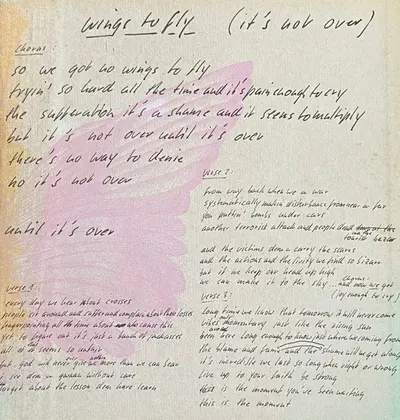 wings to fly (it's not over)
chorus:
so we got no wings to fly
tryin' so hard all the time and it's pain enough to cry
the suffaration it's a shame and it seems to multiply
but it's not over until it's over
there's no way to denie
no it's not over
until it's over
verse 1:
every day we hear about crosses
people sit around and complain about their losses
all the time about who cause this
yet to figure out it's just a bunch of
all of it seems so unfair
but god will never give me more than we can bear
forget about the lesson dem have learn
verse 2:
from way back when we a war
systematically makin disturbance from near or far
you puttin' bombs under cars
another terrorist attack and people dead
and the victims dem a carry the scares
and the actions and the livity we find so bizarr
but if we keep our head up high
we can make it to the sky ... and now we got
chorus
(joy enough to cry)
verse 3:
long time we know that tomorrow it will never come
vibes momentary just like the rising sun
been around long enough to know just where we coming from
the blame and and the shame will we get along
it's incredible we last so long when right or wrong
live up to your faith be strong
this is the moment you've been waiting
this is the moment